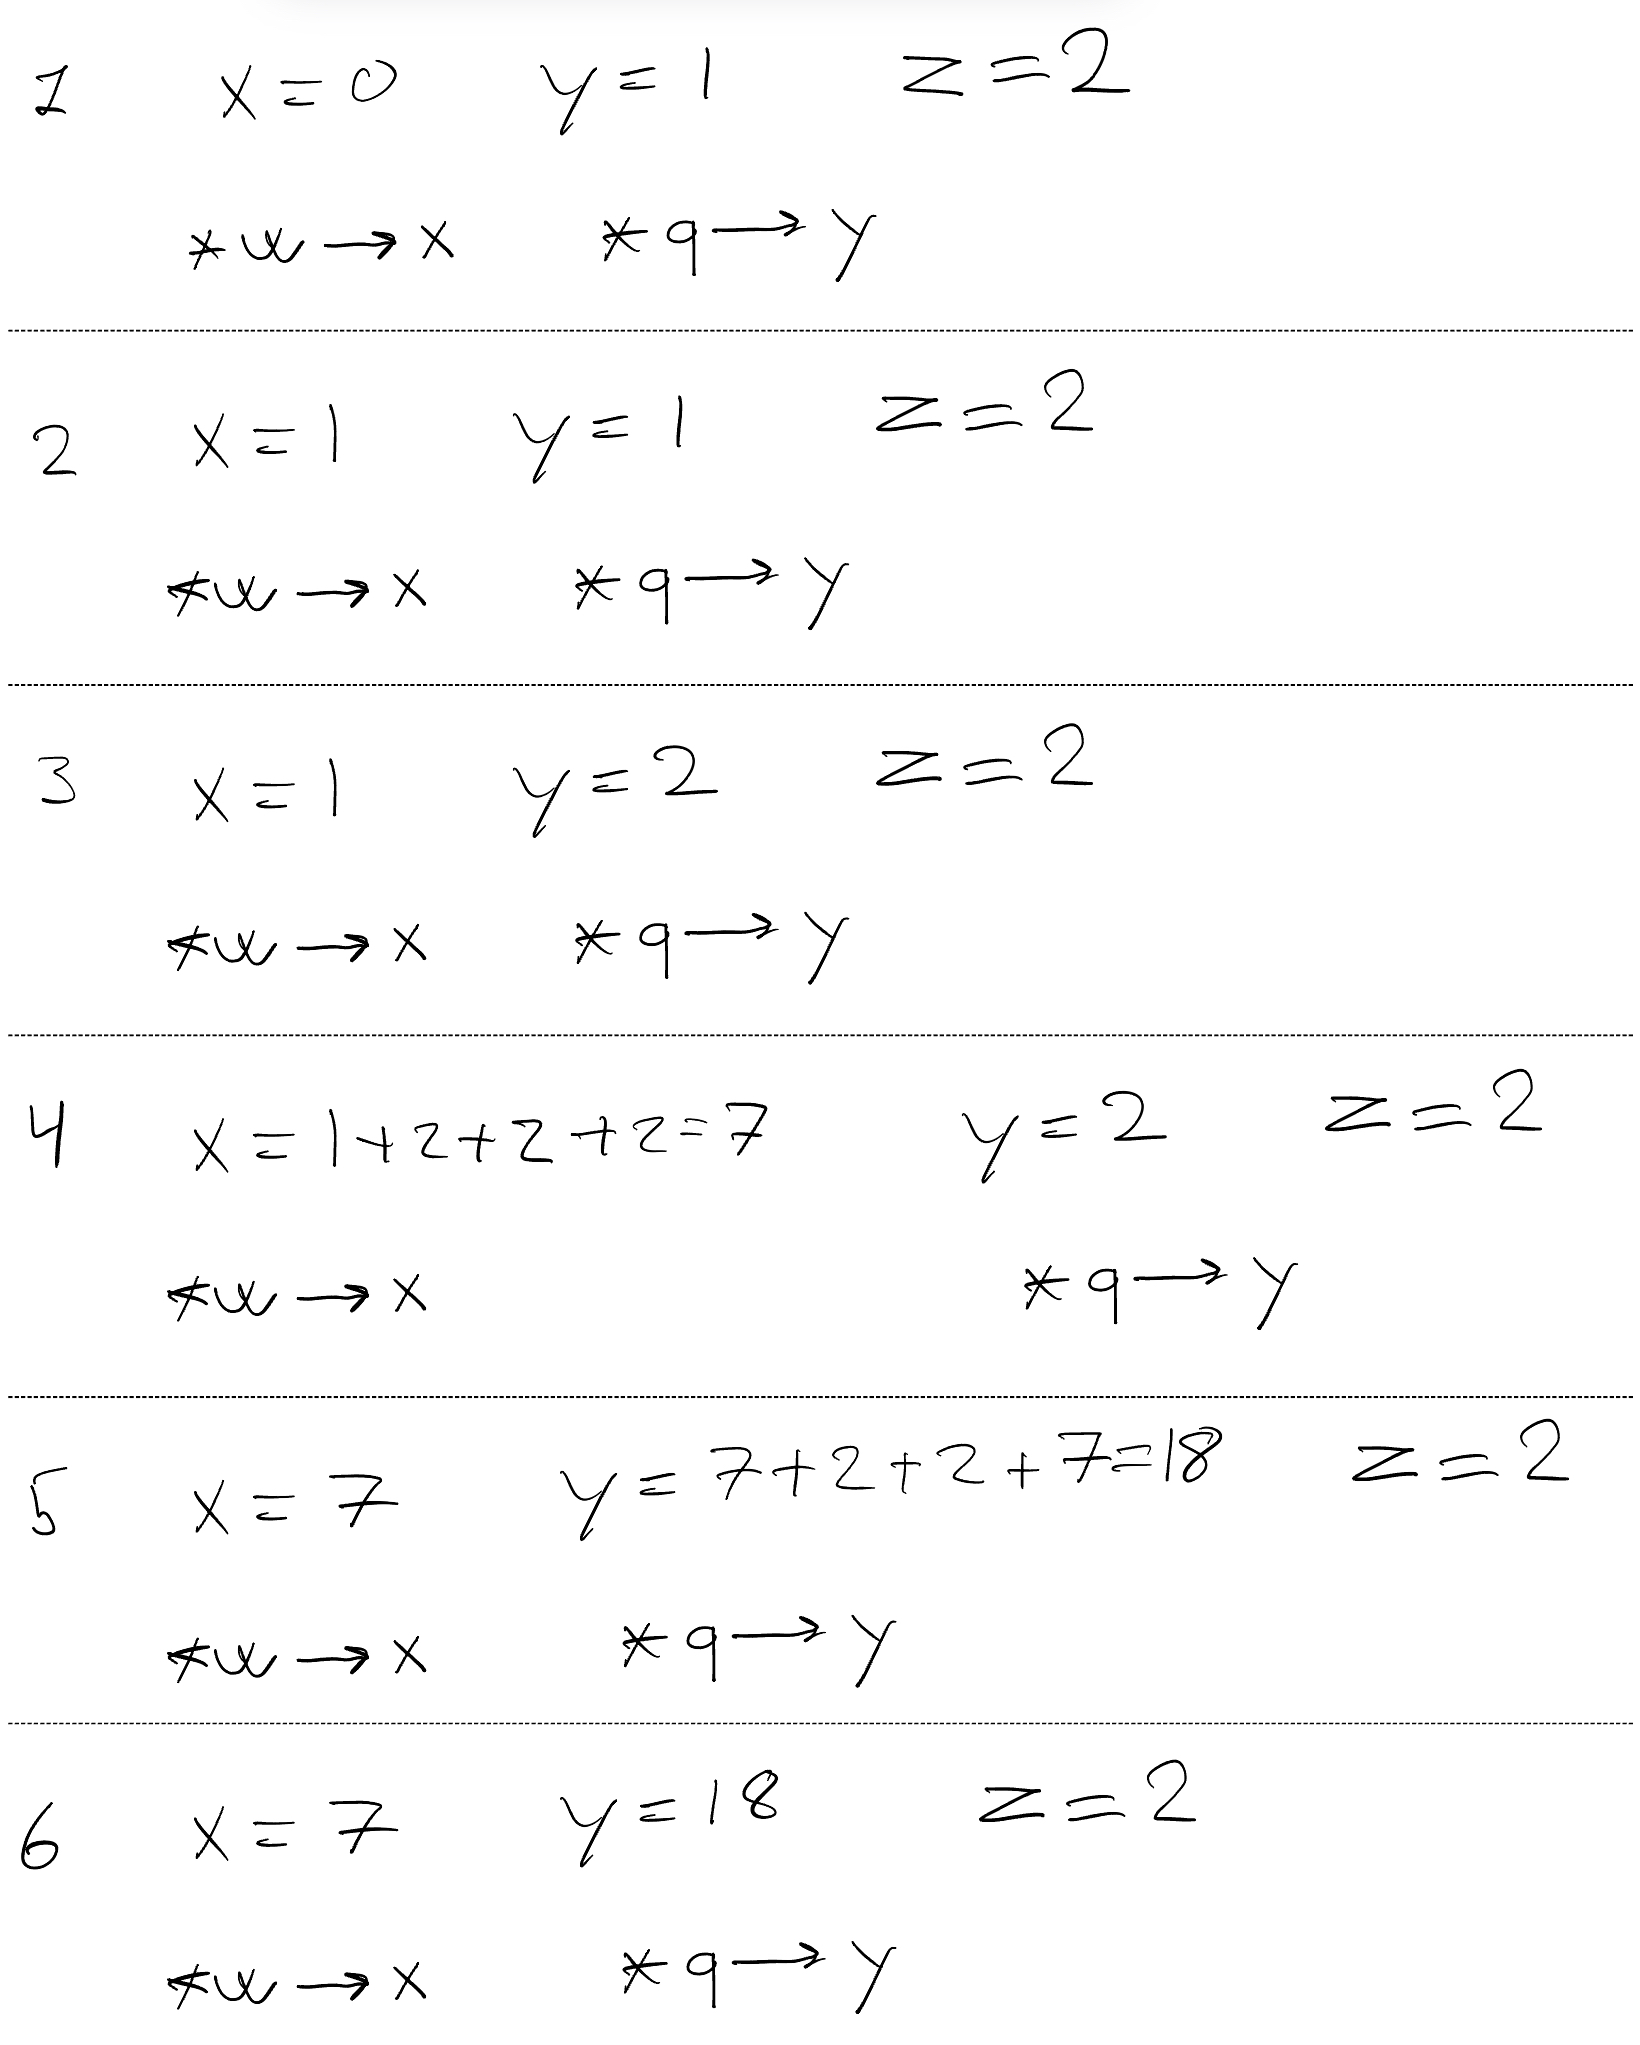 1 x=0 y=1 z=2
*w→x *q→y
2 x=1 y=1 z=2
*w→x *q→y
3 x=1 y=2 z=2
*w→x *q→y
4 x=1+2+2+2=7 y=2 z=2
*w→x *q→y
5 x=7 y=7+2+2+7=18 z=2
*w→x *q→y
6 x=7 y=18 z=2
*w→x *q→y